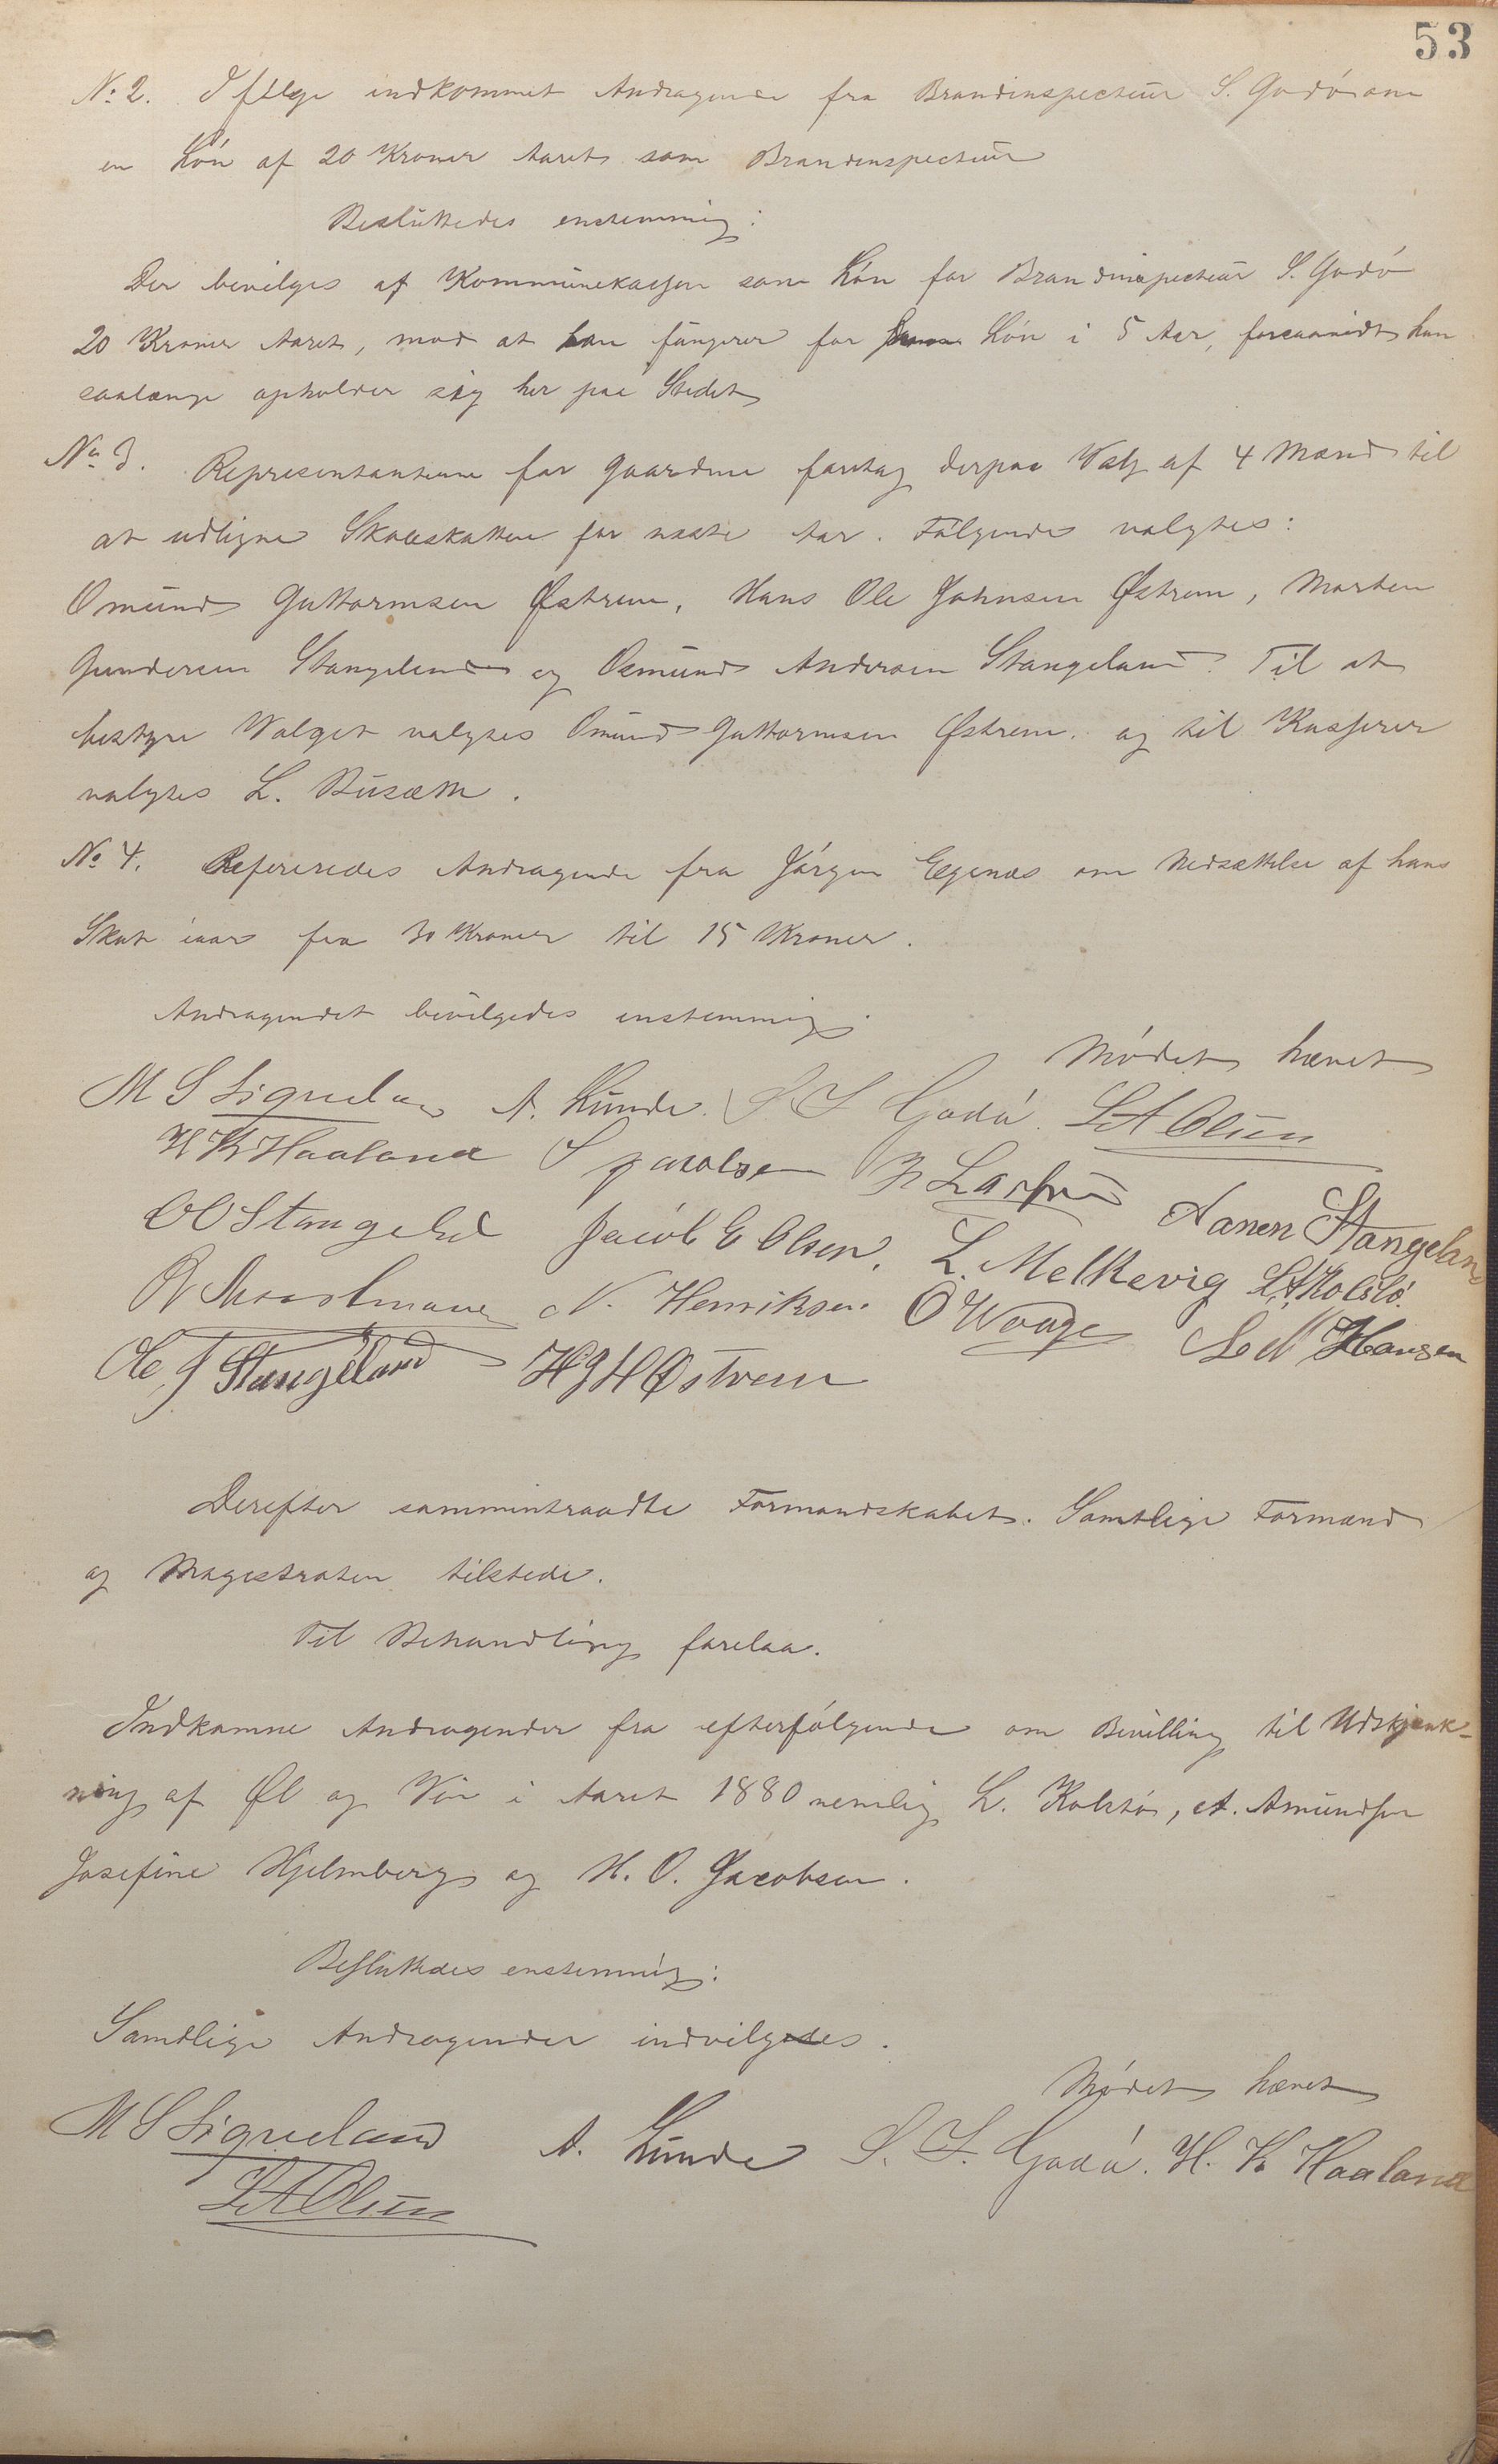 53
No 2. Ifølge indkommet Andragende fra Brandinspecteur S. Godø om
en Løn af 20 Kroner Aaret som Brandinspecteur
Besluttedes enstemmig:
Der bevilges af Kommunekassen som Løn for Brandinspecteur S. Godø
20 Kroner Aaret, mod at han fungerer for Løn i 5 Aar, forsaavidt han
saalænge opholder sig her paa Stedet
No 3. Representanterne for Gaardene foretog derpaa Valg af 4 Mænd til
at udligne Skoleskatten for næste Aar. Følgende valgtes:
Omund Guttormsen Østrem, Hans Ole Johnsen Østrem, Morten
Gundersen Stangeland og Osmund Andersen Stangeland. Til at
bestyre Valget valgtes Omund Guttormsen Østrem. og til Kasserer
valgtes L. Busæth.
No 4. Refereredes Andragende fra Jørgen Egenæs om Nedsættelse af hans
Skat iaar fra 30 Kroner til 15 Kroner.
Andragendet bevilgedes enstemmig.
Mødet hævet
M S Liqueland A. Lunde. S S Godø. L A Olsen
H K Haaland S Jacobsen Aanen Stangeland
O O Stangeland Jacob E Olsen. L. Melkevig L. Kolstø.
N. Henriksen. O Waage Hansen
Ole J Stangeland H J H Østrem
Derefter sammentraadte Formandskabet. Samtlige Formænd
og Magistraten tilstede.
Til Behandling forelaa.
Indkomne Andragender fra efterfølgende om Bevilling til Udskjænk-
ning af Øl og Vin i Aaret 1880 nemlig L. Kolstø, A. Amundsen
Josefine Hjelmberg og H. O. Jacobsen.
Besluttedes enstemmig:
Samtlige Andragender indvilgedes.
Mødet hævet
M S Liqueland A. Lunde S. S. Godø. H. K Haaland
L A Olsen